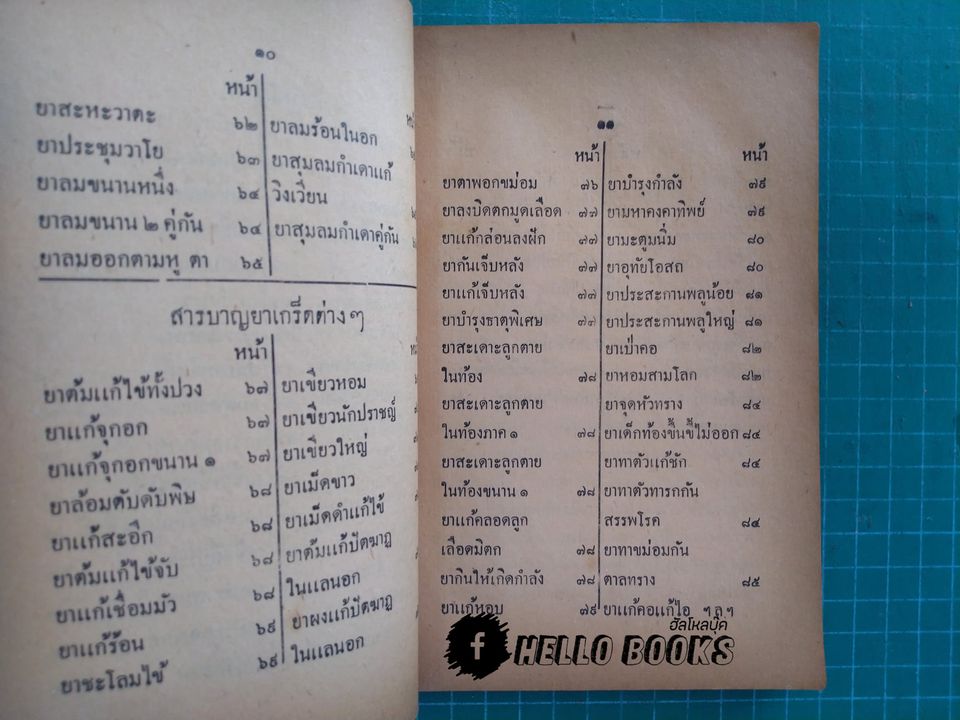 ๑๐
หน้า
ยาสะหะวาตะ ๖๒
ยาประชุมวาโย ๖๓
ยาลมขนานหนึ่ง ๖๔
ยาลมขนาน ๒ คู่กัน ๖๔
ยาลมออกตามหู ตา ๖๕
ยาลมร้อนในอก
ยาสุมลมกำเดาแก้
วิงเวียน
ยาสุมลมกำเดาคู่กัน
สารบาญยาเกร็ดต่าง ๆ
หน้า
ยาต้มแก้ไข้ทั้งปวง ๖๗
ยาแก้จุกอก ๖๗
ยาแก้จุกอกขนาน ๑ ๖๗
ยาล้อมตับดับพิษ ๖๘
ยาแก้สะอึก ๖๘
ยาต้มแก้ไข้จับ ๖๘
ยาแก้เชื่อมมัว ๖๘
ยาแก้ร้อน ๖๙
ยาชะโลมไข้ ๖๙
ยาเขียวหอม
ยาเขียวนักปราชญ์
ยาเขียวใหญ่
ยาเม็ดขาว
ยาเม็ดดำแก้ไข้
ยาต้มแก้ปัตฆาฏ
ในแลนอก
ยาผงแก้ปัตฆาฏ
ในแลนอก
๑๑
หน้า
ยาตาพอกขม่อม ๗๖
ยาลงบิดตกมูดเลือด ๗๗
ยาแก้กล่อนลงฝัก ๗๗
ยากันเจ็บหลัง ๗๗
ยาแก้เจ็บหลัง ๗๗
ยาบำรุงธาตุพิเศษ ๗๗
ยาสะเดาะลูกตาย
ในท้อง ๗๘
ยาสะเดาะลูกตาย
ในท้องภาค ๑ ๗๘
ยาสะเดาะลูกตาย
ในท้องขนาน ๑ ๗๘
ยาแก้คลอดลูก
เลือดมิตก ๗๘
ยากินให้เกิดกำลัง ๗๘
ยาแก้หอบ ๗๙
หน้า
ยาบำรุงกำลัง ๗๙
ยามหาคงคาทิพย์ ๗๙
ยามะตูมนิ่ม ๘๐
ยาอุทัยโอสถ ๘๐
ยาประสะกานพลูน้อย ๘๑
ยาประสะกานพลูใหญ่ ๘๑
ยาเป่าคอ ๘๒
ยาหอมสามโลก ๘๒
ยาจุดหัวทราง ๘๔
ยาเด็กท้องขึ้นขี้ไม่ออก ๘๔
ยาทาตัวแก้ชัก ๘๔
ยาทาตัวทารกกัน
สรรพโรค ๘๔
ยาทาขม่อมกัน
ตาลทราง ๘๕
ยาแก้คอแก้ไอ ฯลฯ
ฮัลโหลบุ๊ค
f HELLO BOOKS